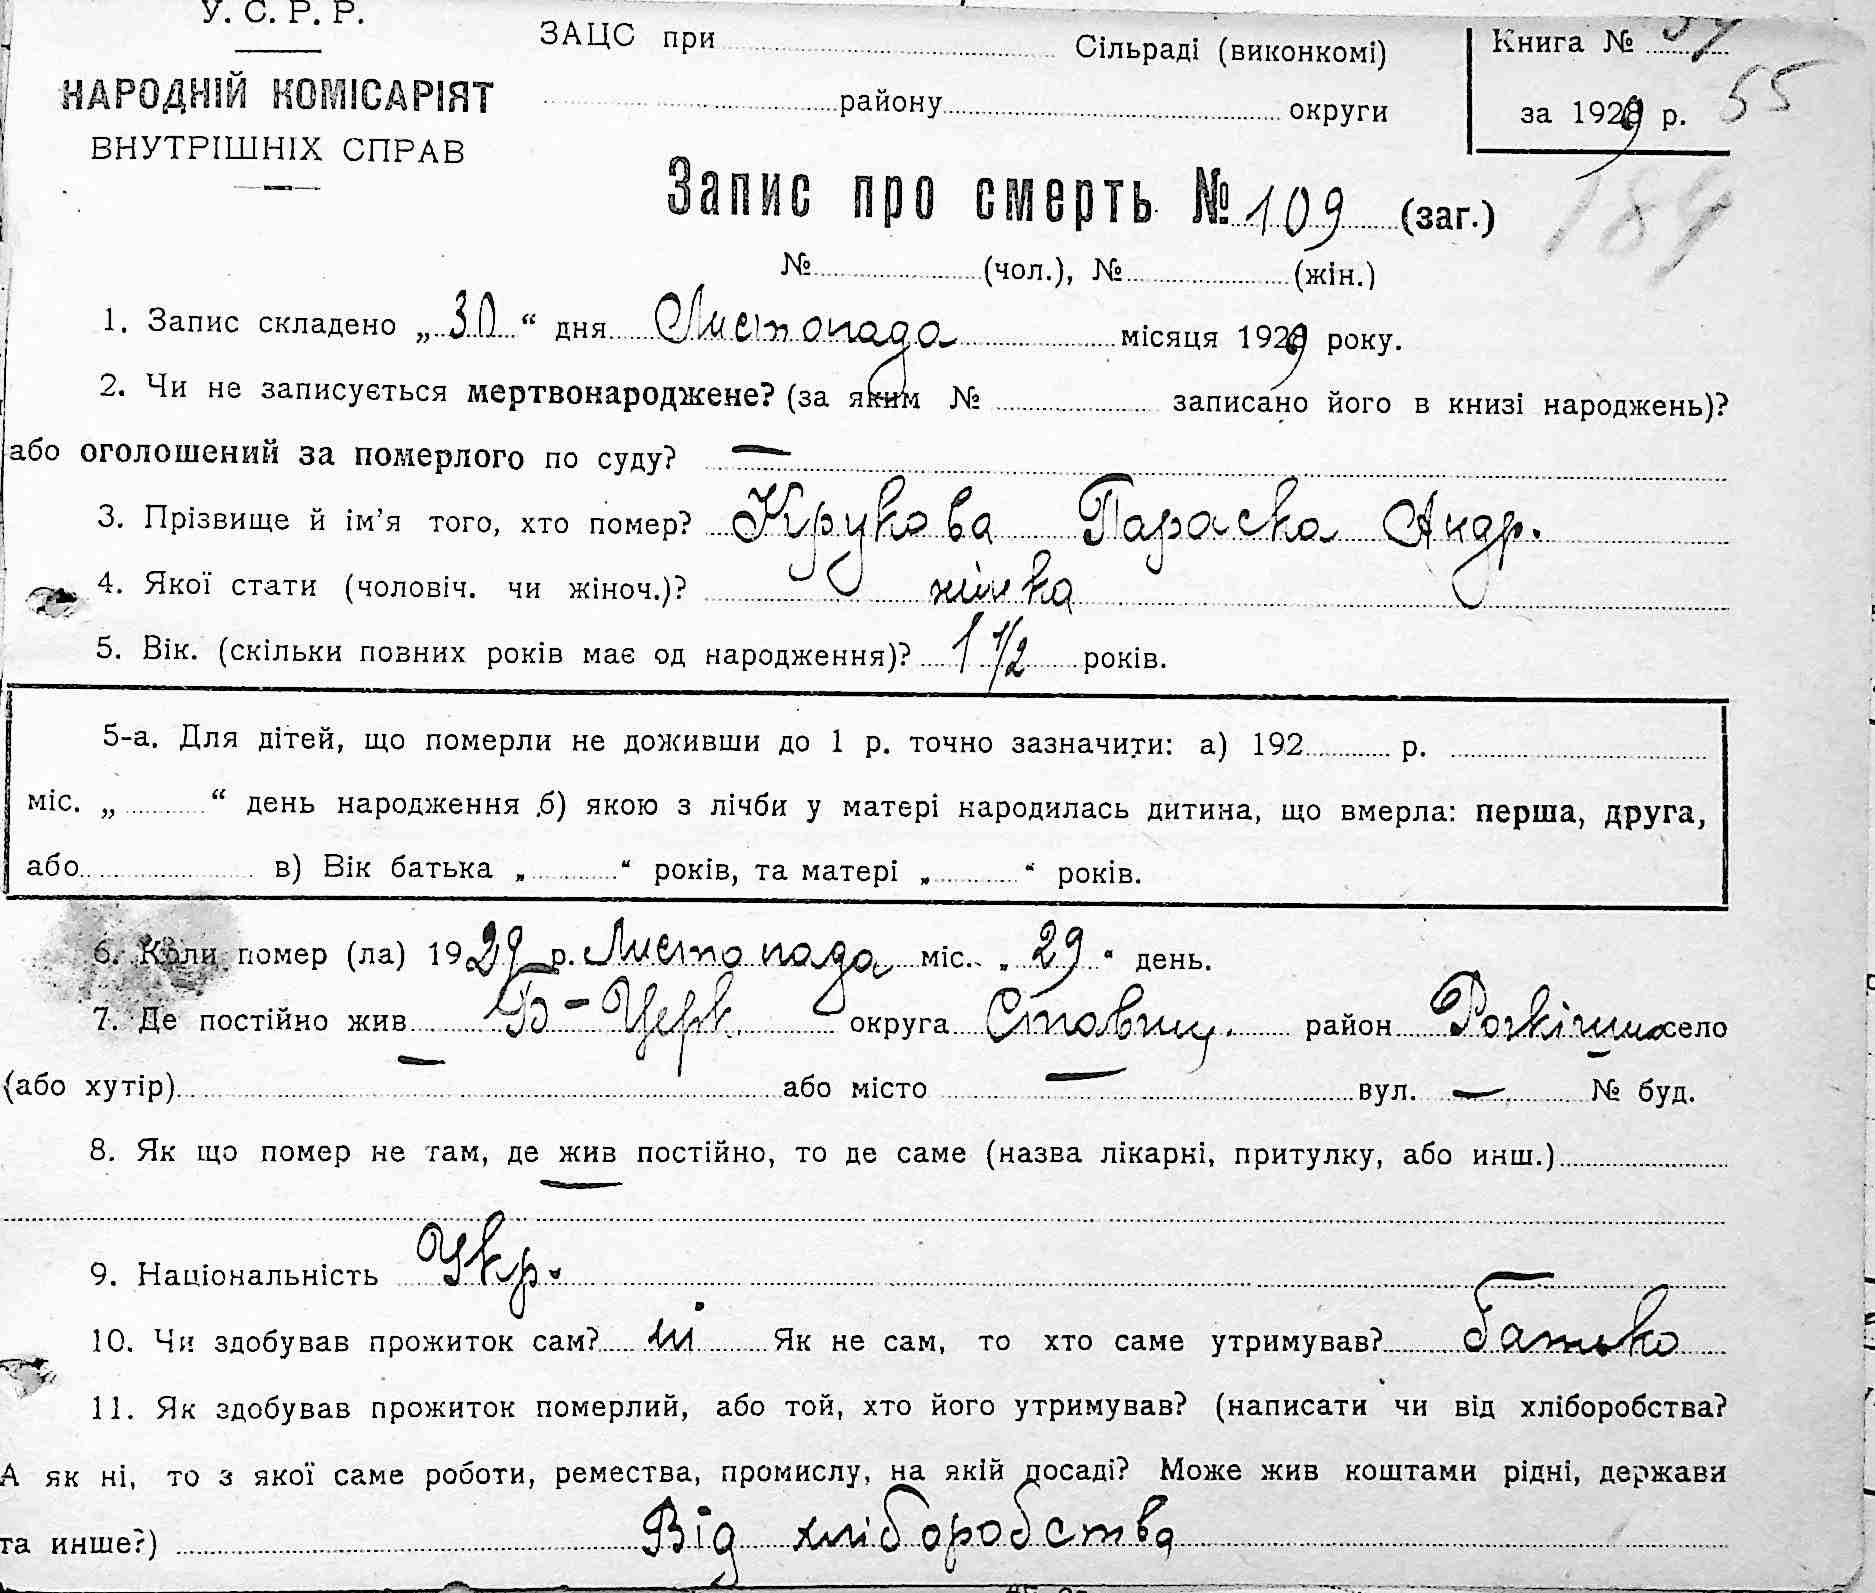 У. С. Р. Р.
НАРОДНІЙ КОМІСАРІЯТ
ВНУТРІШНІХ СПРАВ
ЗАЦС при Сільраді (виконкомі)
району округи
Книга №
за 1929 р. 55
Запис про смерть № 109 (заг.)
189
№ (чол.), № (жін.)
1. Запис складено „30“ дня Листопада місяця 1929 року.
2. Чи не записується мертвонароджене? (за яким № записано його в книзі народжень)?
або оголошений за померлого по суду? —
3. Прізвище й ім’я того, хто помер? Крукова Параска Андр.
4. Якої стати (чоловіч. чи жіноч.)? жінка
5. Вік. (скільки повних років має од народження)? 1 1/2 років.
5-а. Для дітей, що померли не доживши до 1 р. точно зазначити: а) 192 р.
міс. „ “ день народження б) якою з лічби у матері народилась дитина, що вмерла: перша, друга,
або в) Вік батька „ “ років, та матері „ “ років.
6. Коли помер (ла) 1929 р. Листопада міс. „29“ день.
7. Де постійно жив Б-Церк. округа Ставищ. район село
(або хутір) — або місто — вул. — № буд.
8. Як що помер не там, де жив постійно, то де саме (назва лікарні, притулку, або инш.)
—
9. Національність Укр.
10. Чи здобував прожиток сам? ні Як не сам, то хто саме утримував? Батько
11. Як здобував прожиток померлий, або той, хто його утримував? (написати чи від хліборобства?
А як ні, то з якої саме роботи, ремества, промислу, на якій посаді? Може жив коштами рідні, держави
та инше?) Від хліборобства